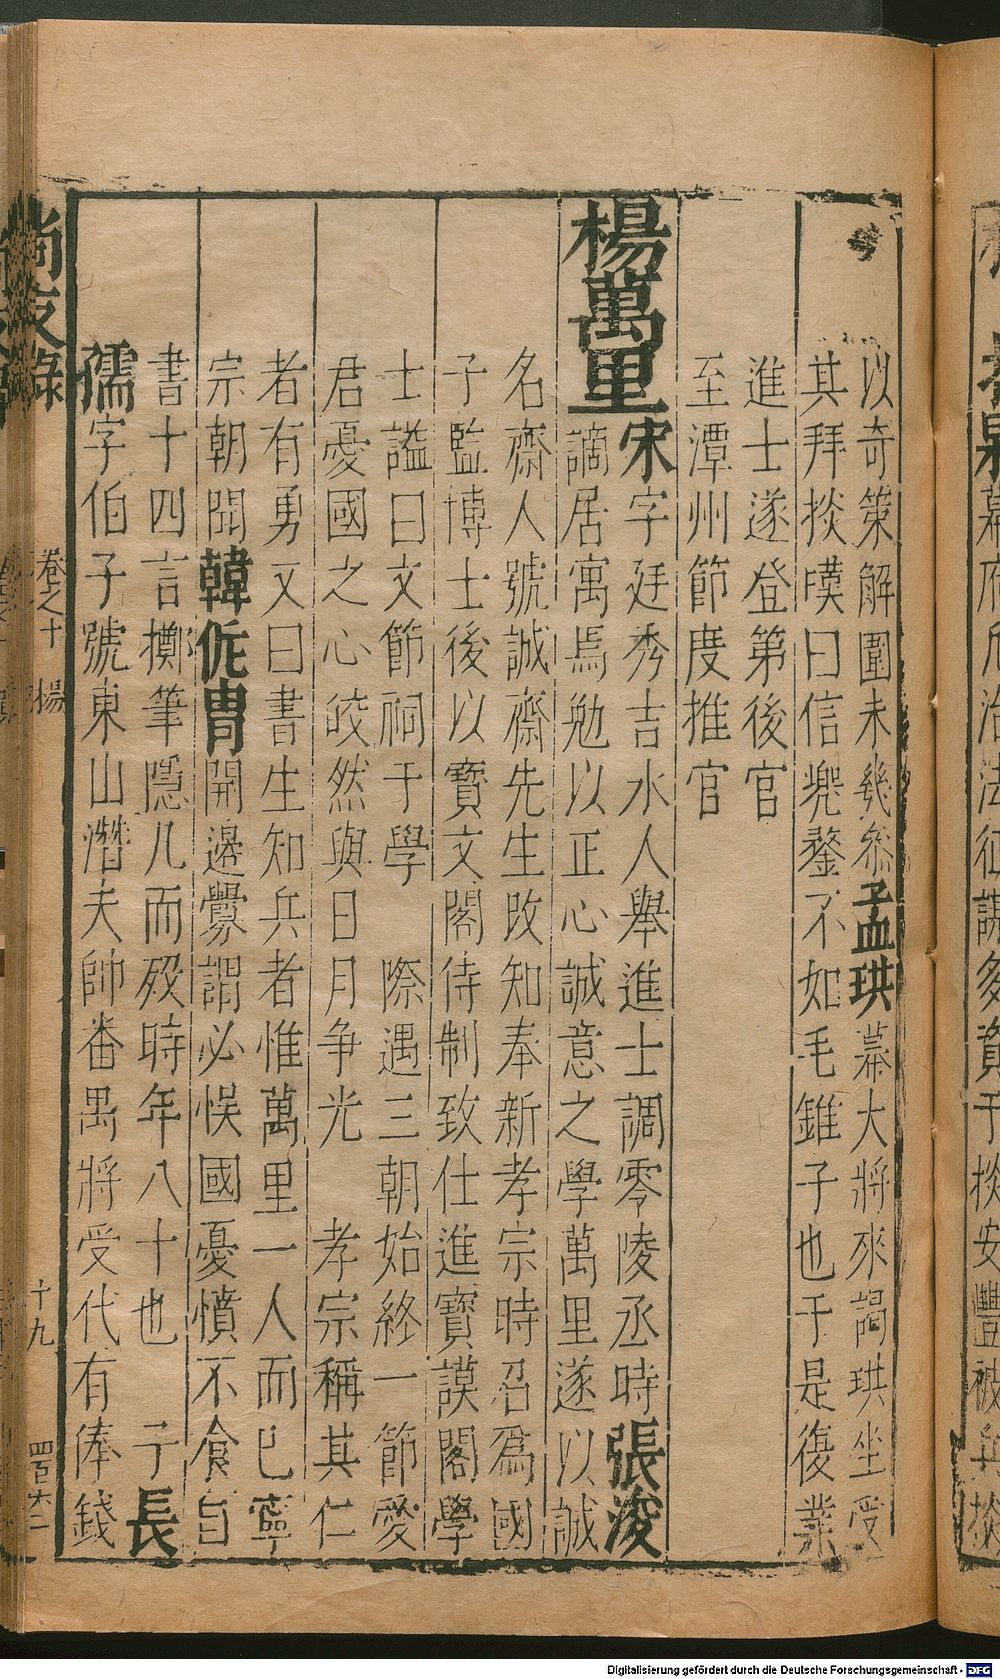 以奇策解圍未幾叅孟珙幕大將來謁珙坐受
其拜掞嘆曰信兠鍪不如毛錐子也于是復業
進士遂登第後官
至潭州節度推官
楊萬里宋字廷秀吉水人舉進士調零陵丞時張浚
謫居寓焉勉以正心誠意之學萬里遂以誠
名齋人號誠齋先生改知奉新孝宗時召爲國
子監博士後以寶文閣侍制致仕進寶謨閣學
士謚曰文節祠于學 際遇三朝始終一節愛
君憂國之心皎然與日月争光 孝宗稱其仁
者有勇又曰書生知兵者惟萬里一人而已寧
宗朝聞韓侂胄開邊釁謂必悮國憂憤不食自
書十四言擲筆隱几而殁時年八十也 子長
孺字伯子號東山潛夫帥番禺將受代有俸錢
尚友錄 卷之十 楊 十九 四百六二
Digitalisierung gefördert durch die Deutsche Forschungsgemeinschaft - DFG